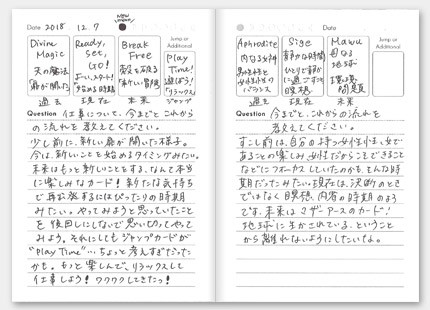 Date 2018 12.7
New moon
Jump or Additional
Divine Magic
天の魔法
「扉が開いた」
過去
Ready, Set, Go!
「よーい、スタート!」
始める時期
現在
Break Free
殻を破る
「新しい冒険」
未来
Play Time!
遊ぼう!
「リラックス」
ジャンプ
Question 仕事について、今までとこれから
の流れを教えてください。
少し前に、新しい扉が開いた様子。
今は、新しいことを始めるタイミングみたい。
未来はもっと新しいことをする、なんて本当
に楽しみなカード! 新たな気持ち
で再出発するにはぴったりの時期
みたい。やってみようと思っていたこと
を後回しにしないで思い切ってやって
みよう。それにしてもジャンプカードが
"Play Time"…ちょっと考えすぎだった
かも。もっと楽しんで、リラックスして
仕事しよう! ワクワクしてきたっ!
Date
Jump or Additional
Aphrodite
内なる女神
男性性と女性性の
バランス
過去
Sige
静かな時間
ひとりで静か
に過ごす
瞑想
現在
Mawu
母なる
地球
環境
問題
未来
Question 今までと、これからの流れを
教えてください。
すこし前は、自分の持つ女性性や、女で
あることの楽しみ、女性だからこそできること
などにフォーカスしていたのかも。そんな時
期だったみたい。現在は、決断のとき
ではなく瞑想、内省の時期のよう
です。未来はマザーアースのカード!
地球に生かされている、ということ
から離れないようにしたいな。